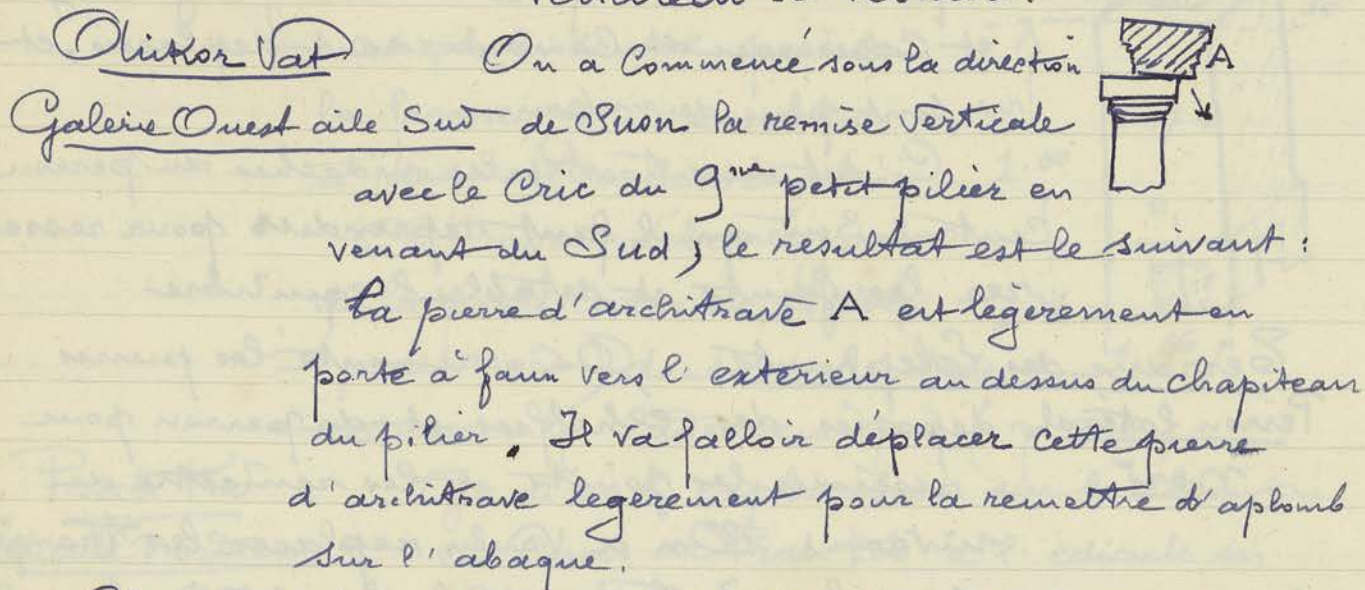 Ankor Vat On a Commencé sous la direction A
Galerie Ouest aile Sud de Suon la remise Verticale
avec le Cric du 9me petit pilier en
venant du Sud ; le resultat est le suivant :
La pierre d'architrave A est légerement en
porte à faux vers l'exterieur au dessus du chapiteau
du pilier. Il va falloir déplacer cette pierre
d'architrave legerement pour la remettre d'aplomb
sur l'abaque.